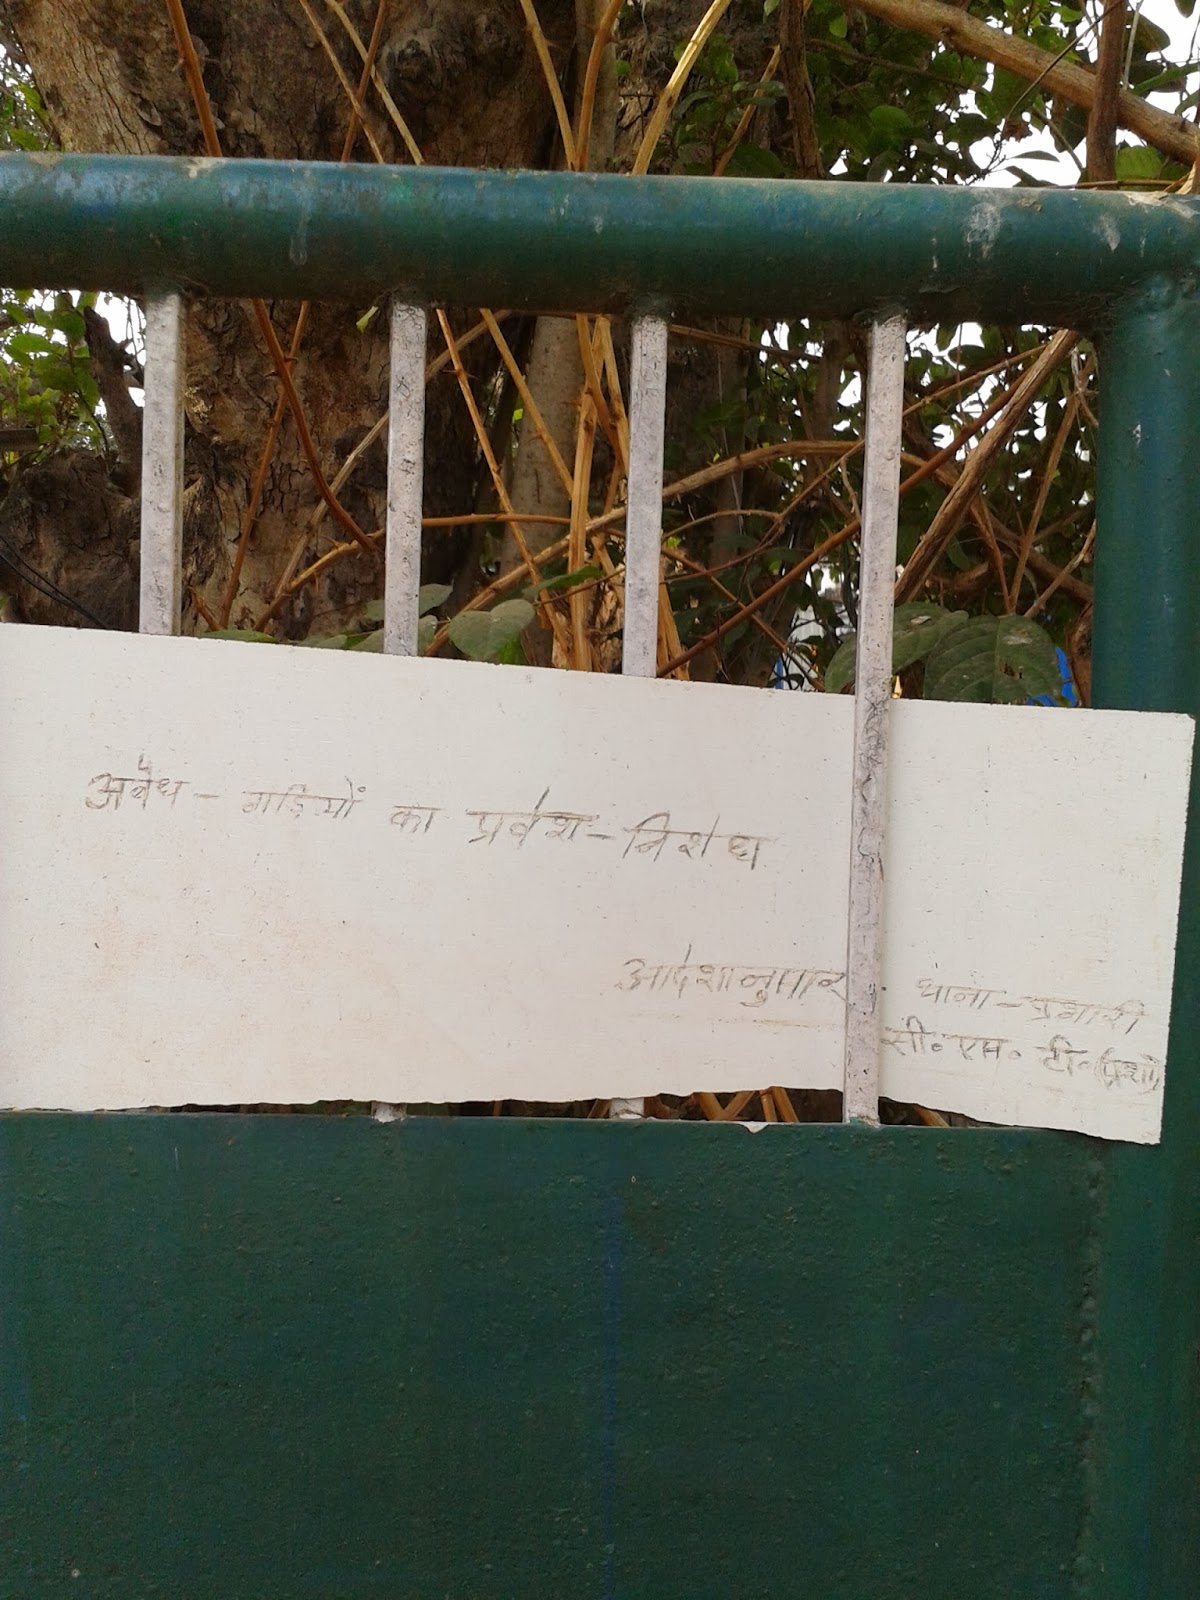 अवैध - गाड़ियों का प्रवेश - निशेध
आदेशानुसार थाना - प्रभारी
सी॰ एम॰ टी॰